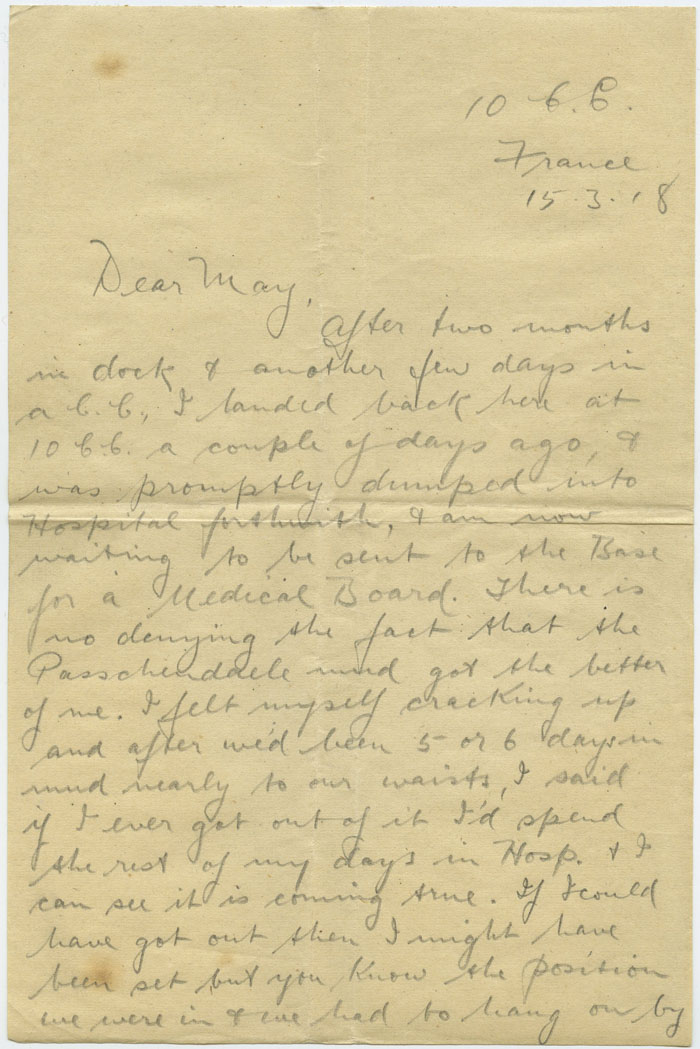 10 C.C.
France
15.3.18
Dear May,
After two months
in dock & another few days in
a C.C., I landed back here at
10 C.C. a couple of days ago, &
was promptly dumped into
Hospital forthwith, & am now
waiting to be sent to the Base
for a Medical Board. There is
no denying the fact that the
Passchendaele mud got the better
of me. I felt myself cracking up
and after we'd been 5 or 6 days in
mud nearly to our waists, I said
if I ever got out of it I'd spend
the rest of my days in Hosp. & I
can see it is coming true. If I could
have got out then I might have
been set but you know the position
we were in & we had to hang on by